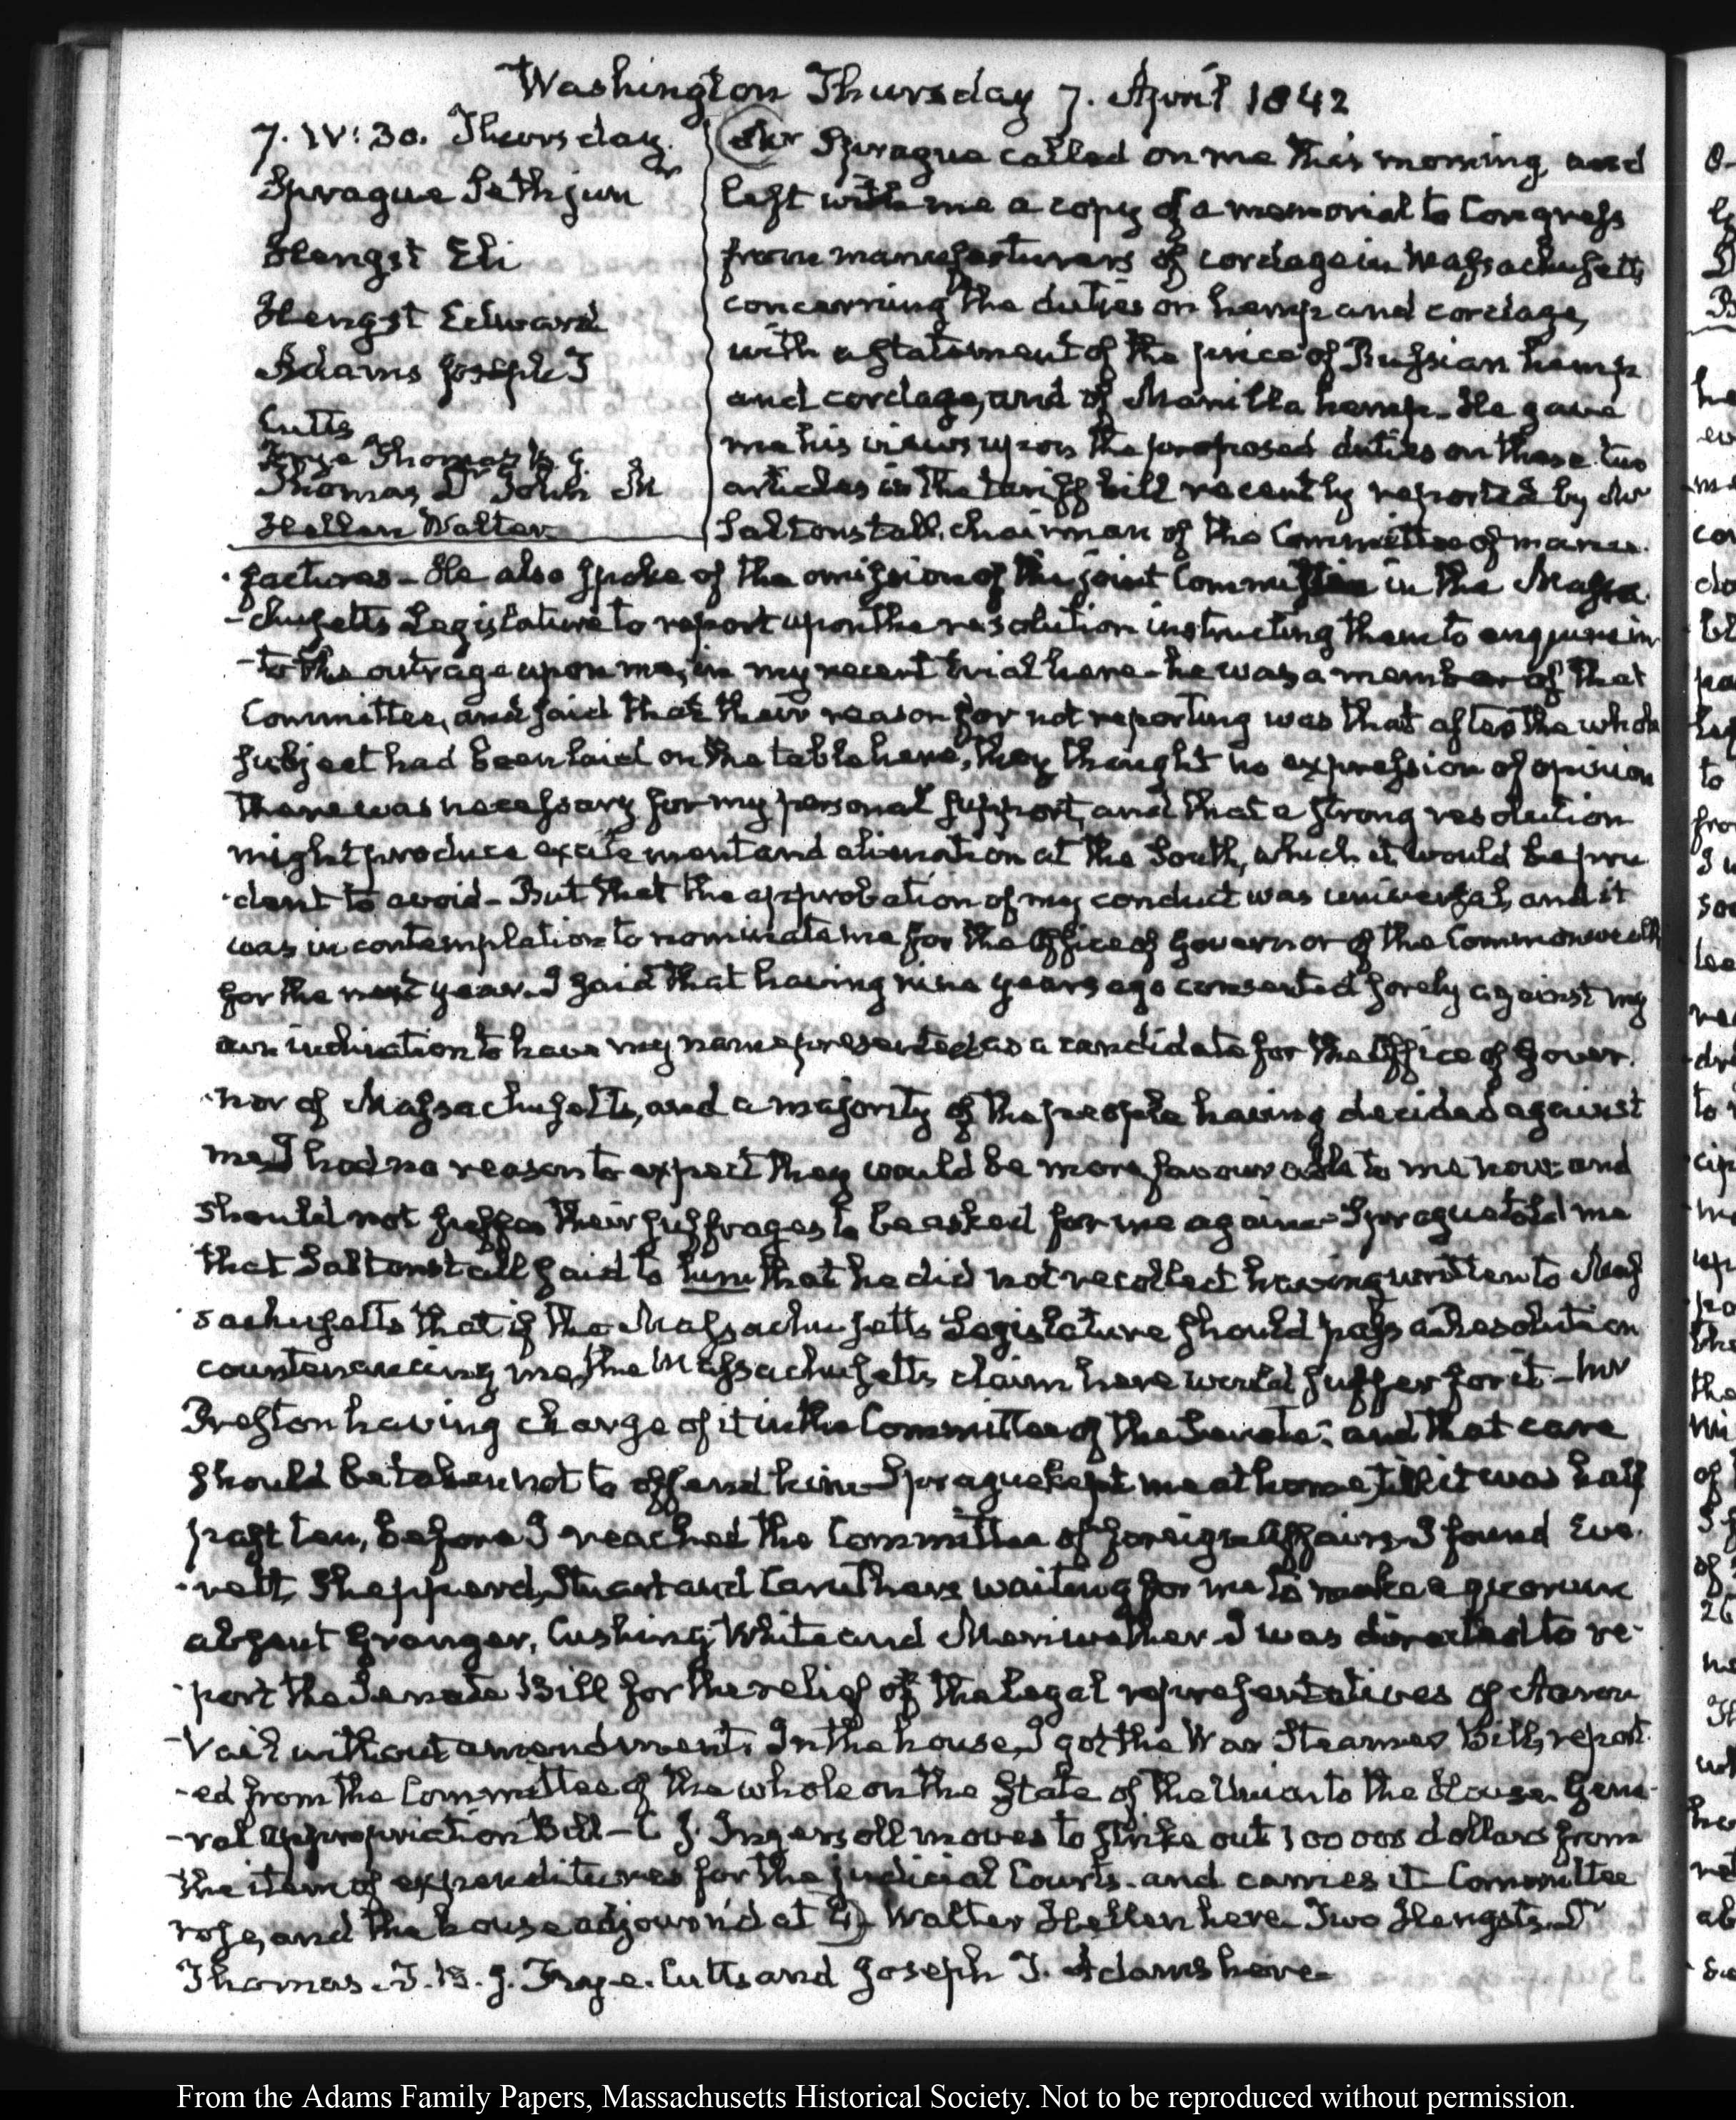 Washington Thursday 7. April 1842
7. IV: 30. Thursday.
Sprague Seth junr
Hengst Eli
Hengst Edward
Adams Joseph T
Cutts
Frye Thomas B. J.
Thomas Dr John M
Hellen Walter
Mr Sprague called on me this morning and
left with me a copy of a memorial to Congress
from manufacturers of cordage in Massachusetts
concerning the duties on hemp and cordage,
with a statement of the price of Russian hemp
and cordage, and of Manilla hemp. He gave
me his views upon the proposed duties on these two
articles in the tariff bill recently reported by Mr
Saltonstall, chairman of the Committee of manu-
-factures - He also spoke of the omission of the joint Committee in the Massa
-chusetts Legislature to report upon the resolution instructing them to enquire in
-to the outrage upon me, in my recent trial here - he was a member of that
Committee, and said that their reason for not reporting was that after the whole
subject had been laid on the table here, they thought no expression of opinion
there was necessary for my personal support, and that a strong resolution
might produce excitement and alienation at the South, which it would be pru
-dent to avoid - But that the approbation of my conduct was universal, and it
was in contemplation to nominate me for the Office of Governor of the Commonwealth
for the next year. I said that having nine years ago consented sorely against my
own inclination to have my name presented as a candidate for the Office of Gover-
-nor of Massachusetts, and a majority of the people having decided against
me I had no reason to expect they would be more favourable to me now; and
should not suffer their suffrages to be asked for me again - Sprague told me
that Saltonstall said to him that he did not recollect having written to Mas
-sachusetts that if the Massachusetts Legislature should pass a Resolution
countenancing me, the Massachusetts claim here would suffer for it - Mr
Preston having charge of it in the Committee of the Senate; and that care
should be taken not to offend him - Sprague kept me at home, till it was half
past ten, before I reached the Committee of foreign Affairs. I found Eve-
-rett, Shepperd, Stuart and Caruthers waiting for me to make a quorum
absent Granger, Cushing, White and Meriwether. I was directed to re-
-port the Senate Bill for the relief of the legal representatives of Aaron
-Vail without amendment. In the house, I got the War Steamer Bill, report-
-ed from the Committee of the whole on the State of the Union to the House. Gene-
-ral appropriation Bill - C. J. Ingersoll moves to strike out 100 000 dollars from
the item of expenditures for the judicial Courts. and carries it - Committee
rose, and the house adjourn'd at 4) Walter Hellen here Two Hengsts. Dr
Thomas. T. B. J. Frye. Cutts and Joseph T. Adams here.
From the Adams Family Papers, Massachusetts Historical Society. Not to be reproduced without permission.